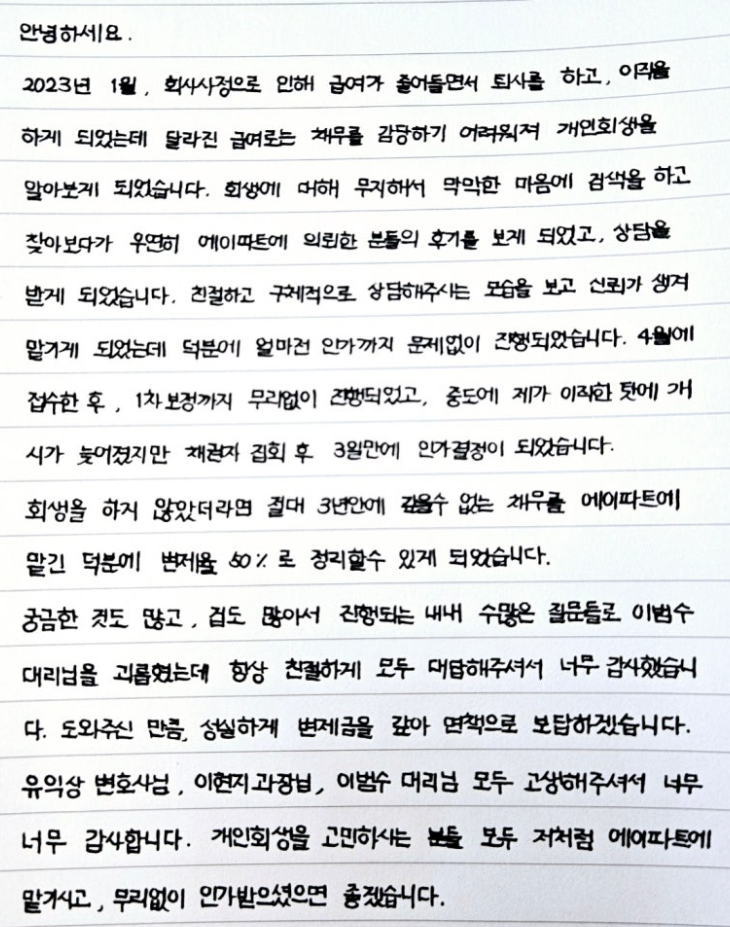 안녕하세요.
2023년 1월, 회사사정으로 인해 급여가 줄어들면서 퇴사를 하고, 이직을
하게 되었는데 달라진 급여로는 채무를 감당하기 어려워져 개인회생을
알아보게 되었습니다. 회생에 대해 무지해서 막막한 마음에 검색을 하고
찾아보다가 우연히 에이파트에 의뢰한 분들의 후기를 보게 되었고, 상담을
받게 되었습니다. 친절하고 구체적으로 상담해주시는 모습을 보고 신뢰가 생겨
맡기게 되었는데 덕분에 얼마전 인가까지 문제없이 진행되었습니다. 4월에
접수한 후, 1차보정까지 무리없이 진행되었고, 중도에 제가 이직한 탓에 개
시가 늦어졌지만 채권자 집회 후 3일만에 인가결정이 되었습니다.
회생을 하지 않았더라면 절대 3년안에 갚을수 없는 채무를 에이파트에
맡긴 덕분에 변제율 60%로 정리할수 있게 되었습니다.
궁금한 것도 많고, 겁도 많아서 진행되는 내내 수많은 질문들로 이범수
대리님을 괴롭혔는데 항상 친절하게 모두 대답해주셔서 너무 감사했습니
다. 도와주신 만큼, 성실하게 변제금을 갚아 면책으로 보답하겠습니다.
유익상 변호사님, 이현지과장님, 이범수 대리님 모두 고생해주셔서 너무
너무 감사합니다. 개인회생을 고민하시는 분들 모두 저처럼 에이파트에
맡기시고, 무리없이 인가받으셨으면 좋겠습니다.